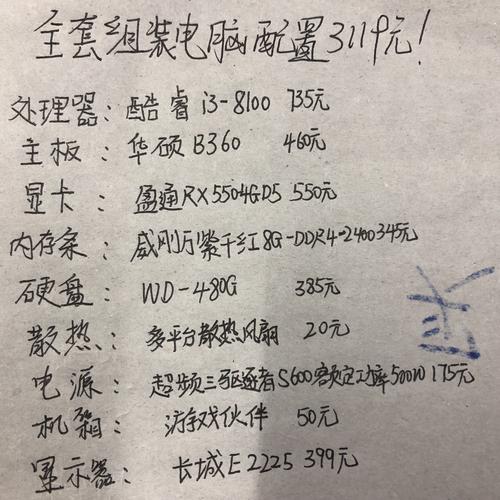 全套组装电脑配置3119元！
处理器：酷睿i3-8100 735元
主板：华硕B360 460元
显卡：盈通RX5504GD5 550元
内存条：威刚万紫千红8G-DDR4-2400345元
硬盘：WD-480G 385元
散热：多平台散热风扇 20元
电源：超频三驱逐者S600额定功率500W175元
机箱：游戏伙伴 50元
显示器：长城E2225 399元